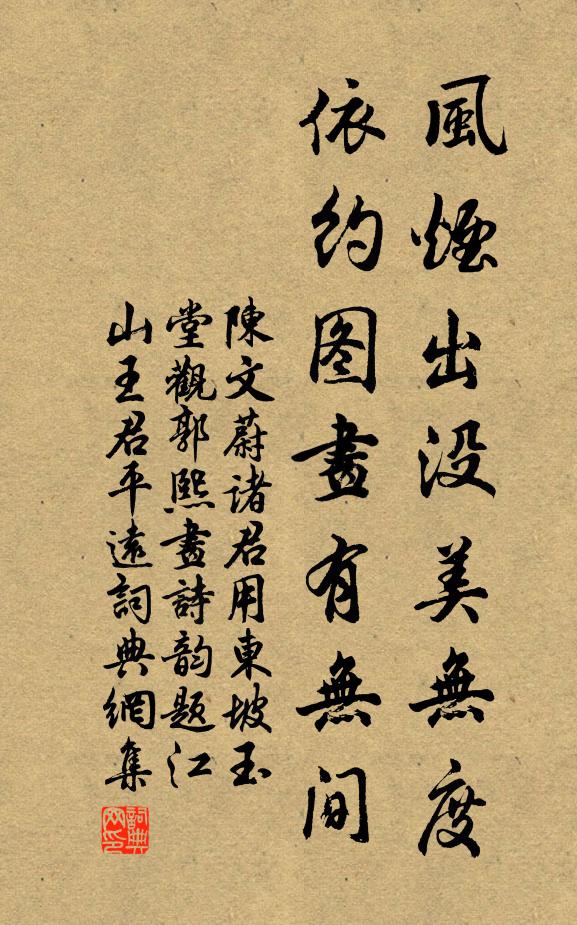 風煙出没美無度
依約图畫有無间
陳文蔚諸君用東坡玉
堂觀郭熙畫詩韵题江
山王君平遠詞典網集
詞典
网印